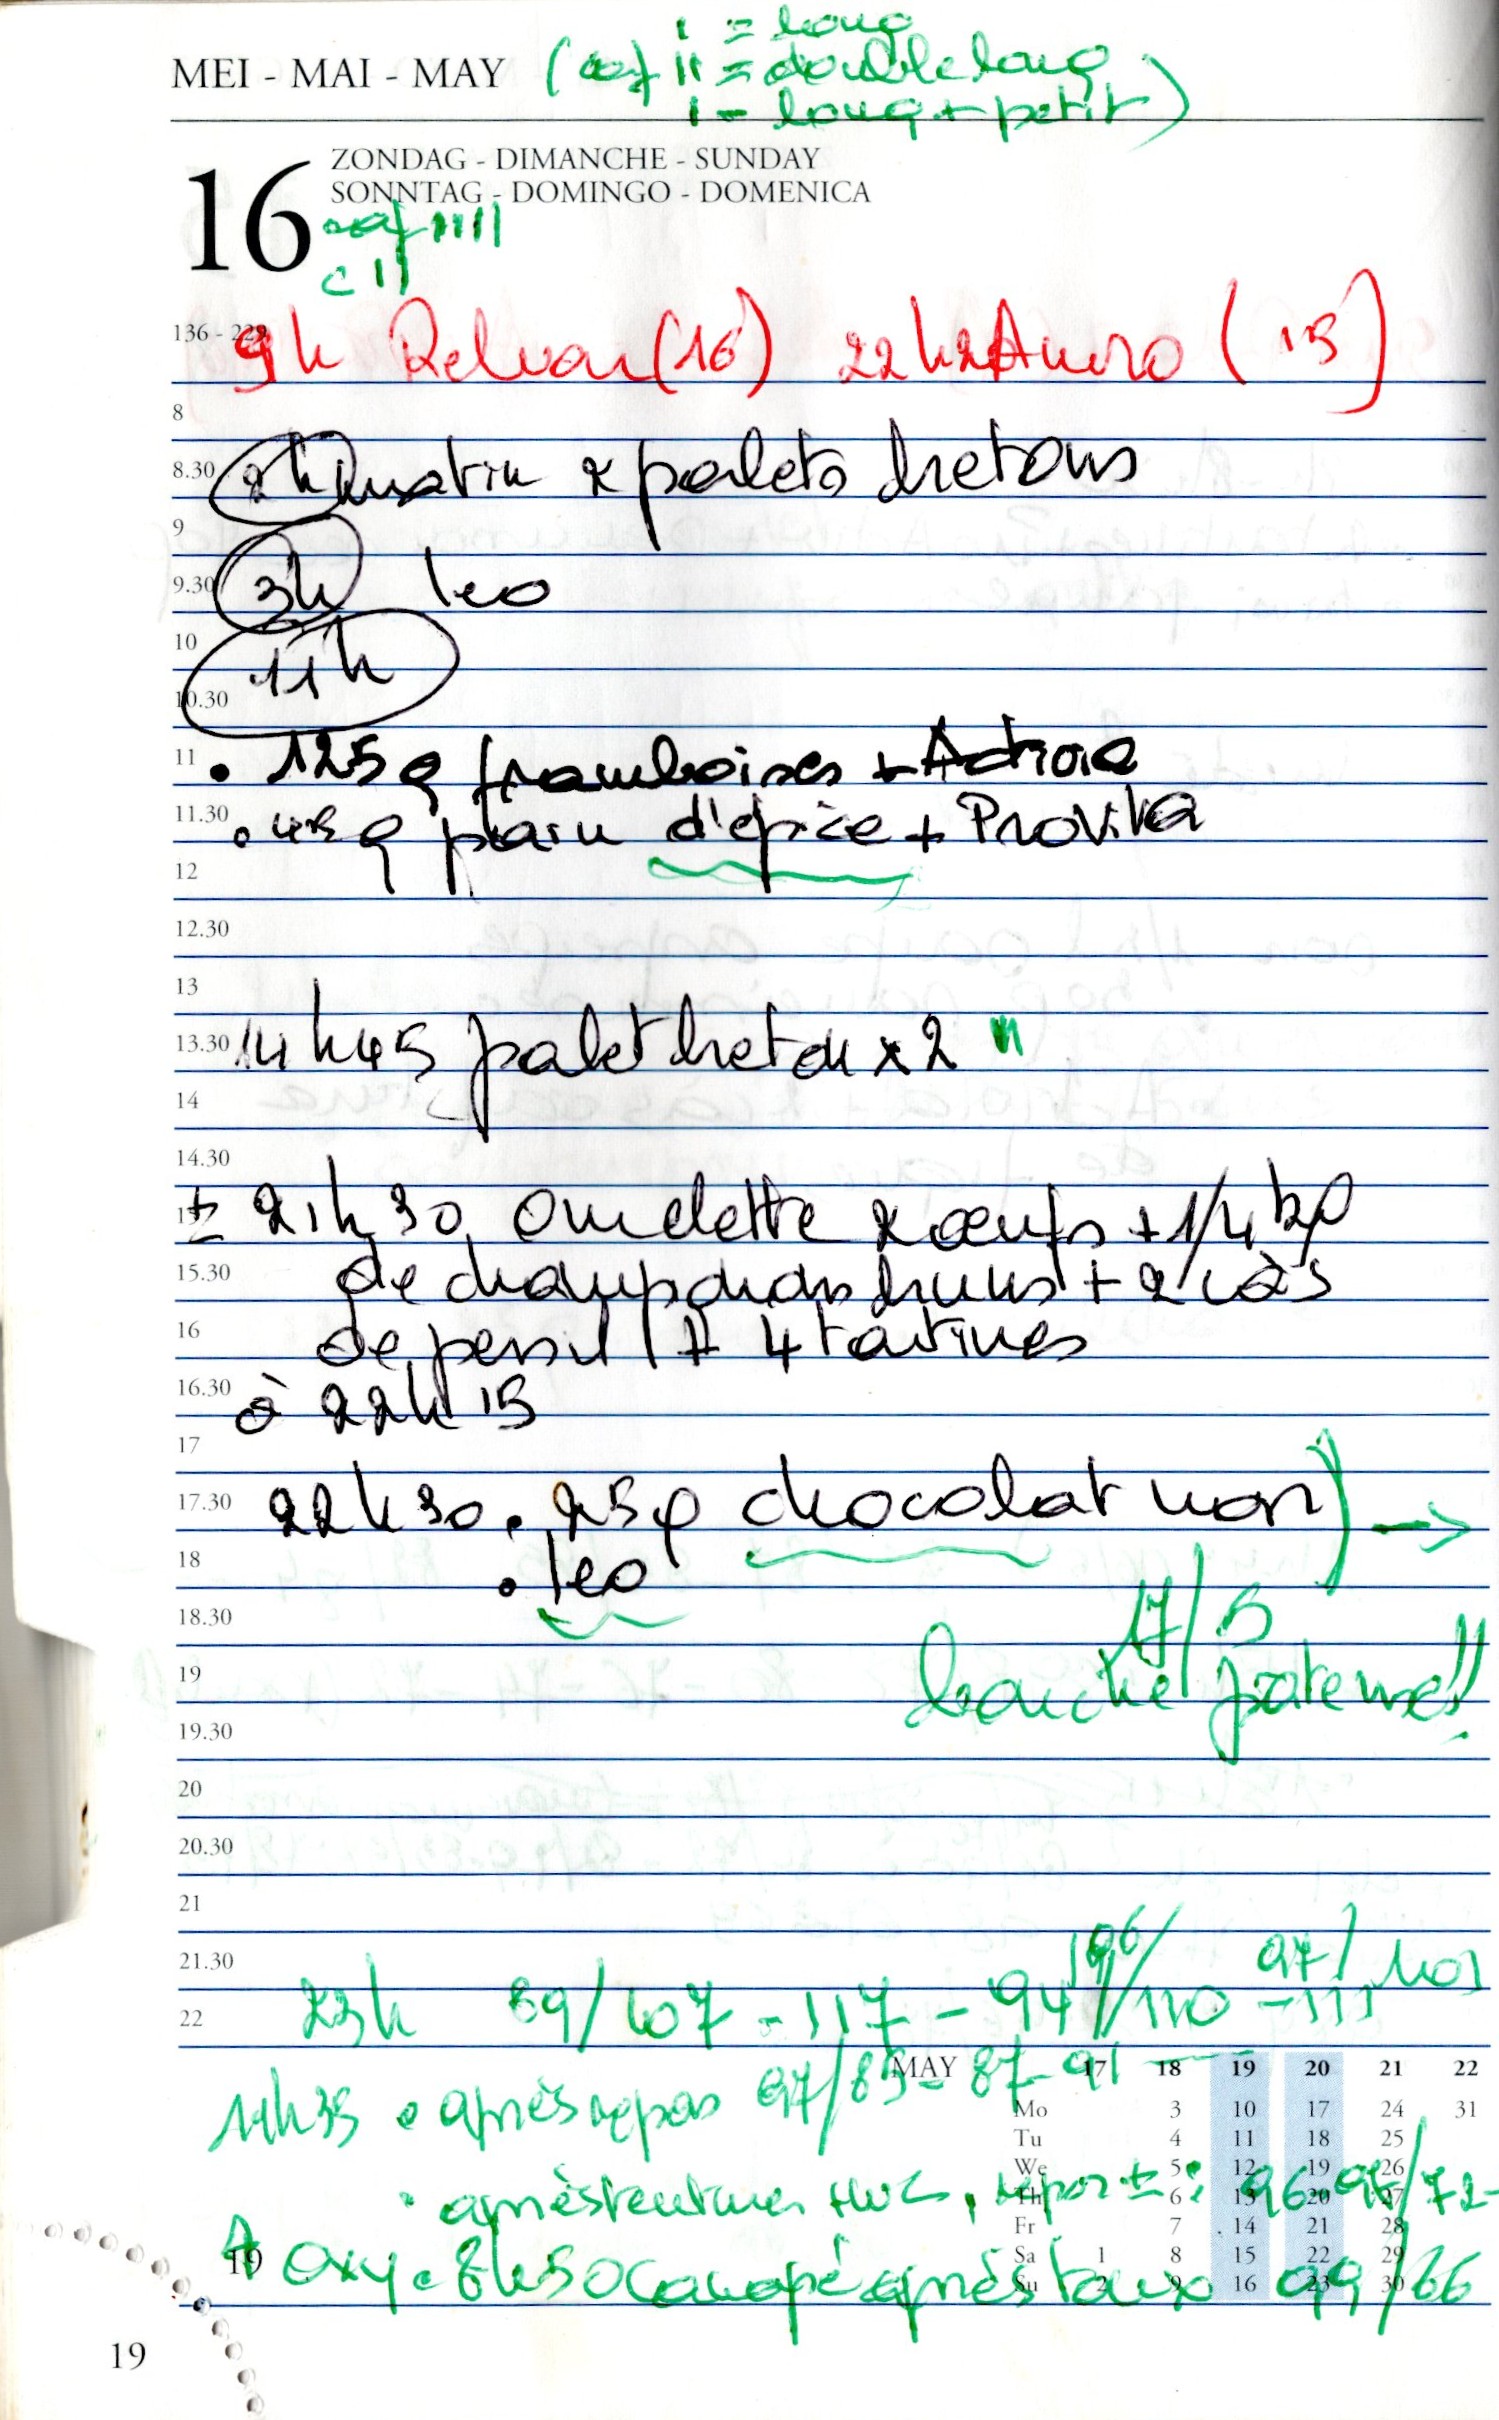 ı = long
MEI - MAI - MAY ( caf ıı = double long
ı - long + petit )
16
ZONDAG - DIMANCHE - SUNDAY
SONNTAG - DOMINGO - DOMENICA
caf ııııı
c ıı
136 - 229
9h Relvar (16) 22h Anoro (15)
8
8.30 matin 2 palets bretons
9
9.30 3h leo
10
11h
10.30
11 • 125 g framboises + Activia
11.30 • 45 g pain d'épice + Provita
12
12.30
13
13.30 14h45 palet breton x 2 ıı
14
14.30
± 21h30 omelette 2 œufs + 1/4
15.30 de champignons bruns + 2 càs
16 de persil 4 tartines
16.30 à 22h15
17
17.30 22h30 • 25g chocolat noir ) →
18 • leo
18.30 17/5
19 bouche pateuse!!
19.30
20
20.30
21
21.30 96/ 97/ 103
22 23h 89/107 - 117 - 94 /110 - 111
MAY 17 18 19 20 21 22
11h35 • après repas 97/85 - 87 - 91
Mo 3 10 17 24 31
Tu 4 11 18 25
We 5 12 19 26
• après WC, repos ± : 96-98/72-
Th 6 13 20 27
Fr 7 14 21 28
Sa 1 8 15 22 29
19 oxy • 8h50 canapé après toux 99/66
Su 2 9 16 23 30
19